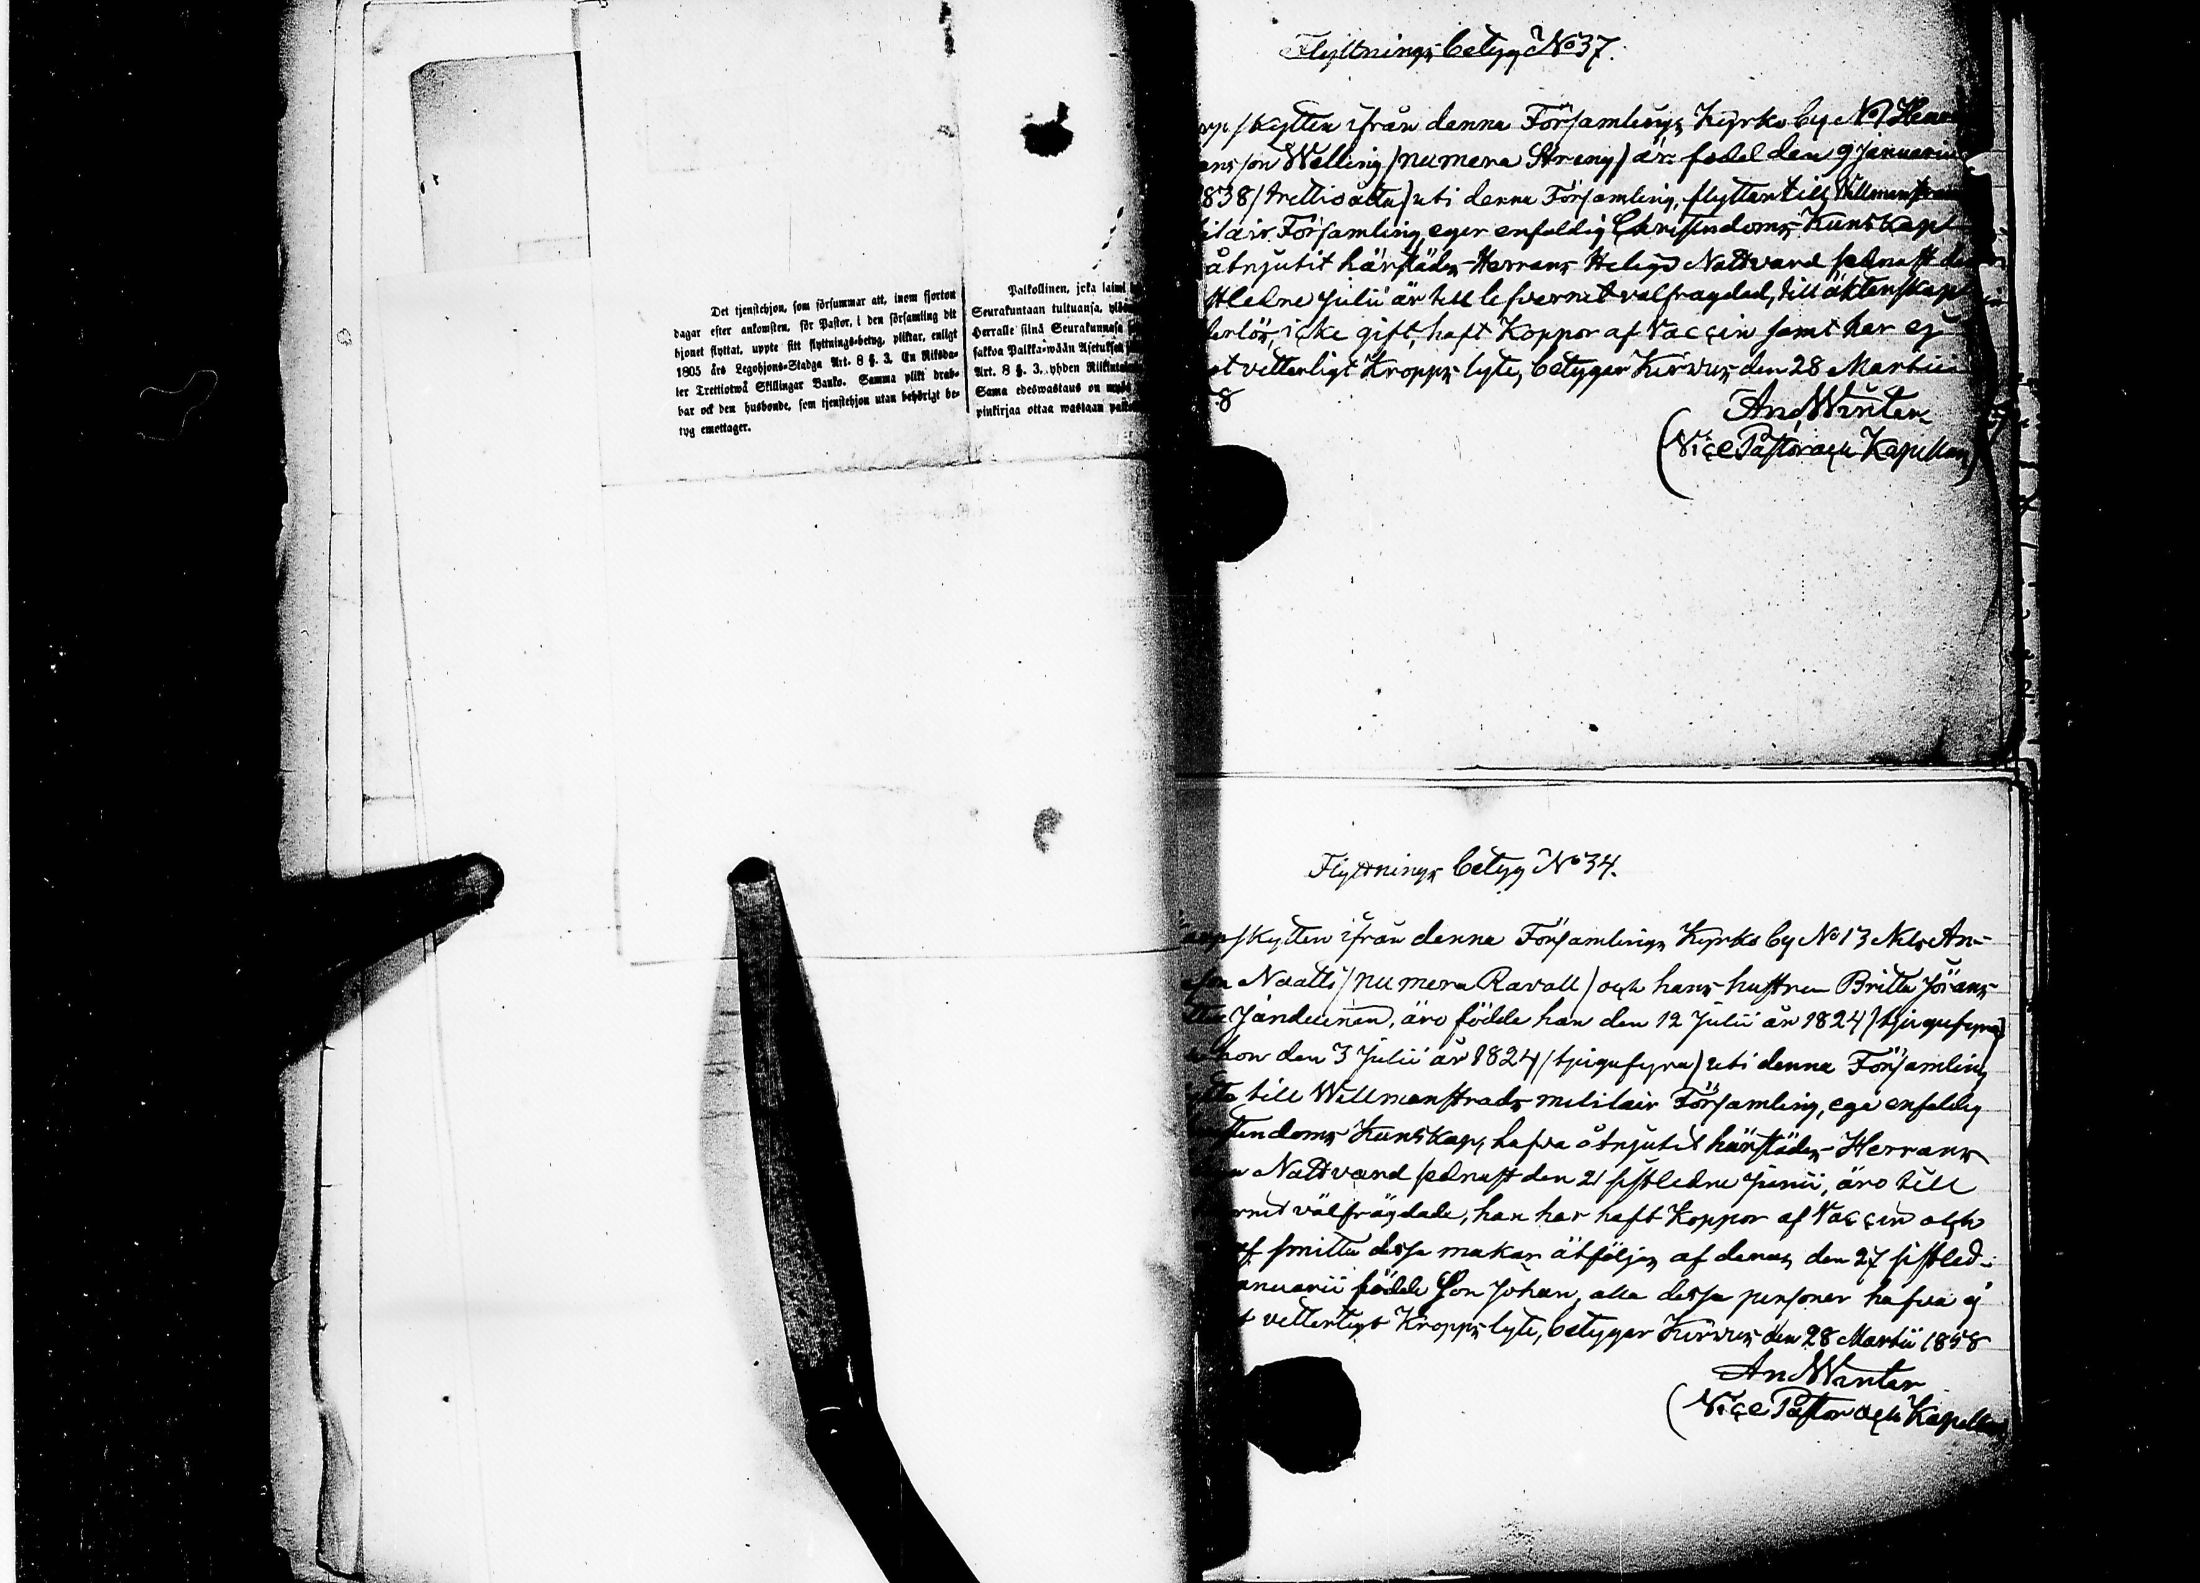 Det tjenstehjon, som försummar att, inom fjorton
dagar efter ankomsten, för Pastor, i den församling dit
hjonet flyttat, uppte sitt flyttnings-betyg, pliktar, enligt
1805 års Legohjons-Stadga Art. 8 §. 3. En Riksda-
ler Trettiotwå Skillingar Banko. Samma plikt drab-
bar ock den husbonde, som tjenstehjon utan behörigt be-
tyg emottager.
Palkollinen, joka laimi
Seurakuntaan tultuansa,
Herralle siinä Seurakunnasa
sakkoa Palkka-wään Asetuksen
Art. 8 §. 3. yhden
Sama edeswastaus on
pinkirjaa ottaa wastaan
Flyttnings betyg No 37.
skytten ifrån denna Församlings Kyrko by No
son Welling (numera Streng) är född den 9 Januarii
1838 (trettioåtta) uti denna Församling, flyttar till Willmanstrand
Församling, eger enfaldig Christendoms Kunskap
åtnjutit härstädes Herrans Helga Nattvard sednast
Julii är till lefvernet välfrägdad, till äktenskap
icke gift, haft Koppor af Vaccin samt har ej
vetterligt Kropps lyte, betygar Kirvus den 28 Martii
8
And Winter
(Vice Pastor och Kapellan)
Flyttnings betyg No 34.
skytten ifrån denna Församlings Kyrko by No 13 Nils An-
son Naatti (numera Ravall) och hans hustru Britta Görans
äro födde han den 12 Julii år 1824 (tjugufyra)
hon den 3 Julii år 1824 (tjugufyra) uti denna Församling
till Willmanstrands militair Församling, ega enfaldig
Kunskap, hafva åtnjutit härstädes Herrans
Nattvard sednast den 21 sistledne Junii, äro till
välfrägdade, han har haft Koppor af Vaccin och
af smitta dessa makar åtföljes af deras den 27 sistled-
födde Son Johan, alla dessa personer hafva ej
vetterligt Kropps lyte, betygar Kirvus den 28 Martii 1858
And Winter
(Vice Pastor och Kapellan